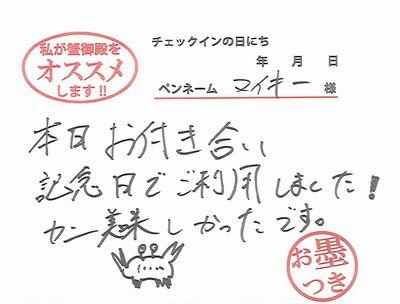 私が蟹御殿を
オススメ
します!!
チェックインの日にち
年 月 日
ペンネーム マイキー 様
本日お付き合い
記念日でご利用しました!
カニ美味しかったです。
お墨
つき